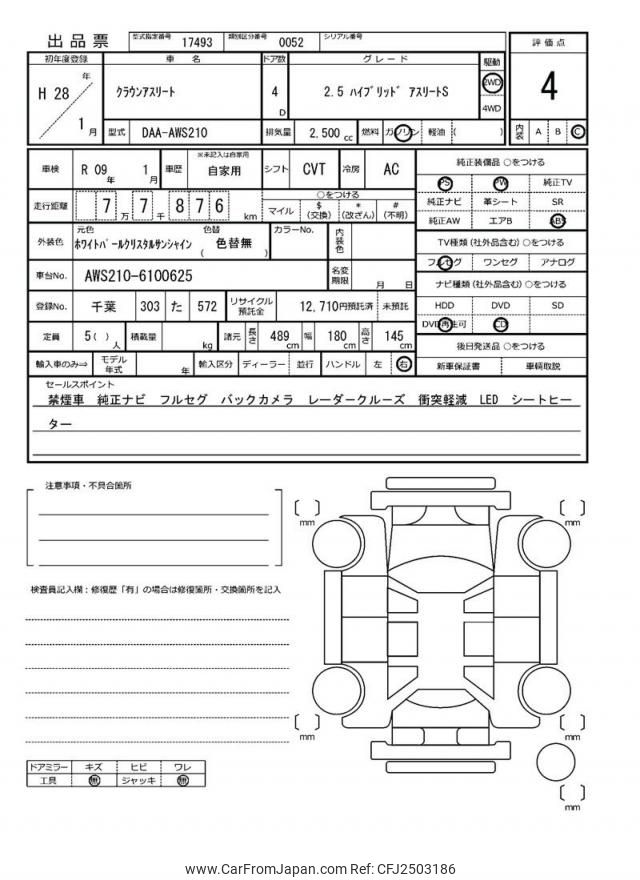 出品票 型式指定番号 17493 類別区分番号 0052 シリアル番号
初年度登録 車名 ドア数 グレード 駆動 評価点
H 28 年 1 月 クラウンアスリート 4 D 2.5 ハイブリッド アスリートS 2WD 4WD 4
型式 DAA-AWS210 排気量 2,500 cc 燃料 ガソリン 軽油 ( ) 内装 A B C
車検 R 09 年 1 月 車歴 ※未記入は自家用 自家用 シフト CVT 冷房 AC
純正装備品 ○をつける
PS PW 純正TV
純正ナビ 革シート SR
純正AW エアB ABS
走行距離 7 万 7 千 8 7 6 km ○をつける マイル $ (交換) * (改ざん) # (不明)
外装色 元色 ホワイトパールクリスタルサンシャイン 色替 ( 色替無 ) カラーNo. 内装色
TV種類 (社外品含む) ○をつける
フルセグ ワンセグ アナログ
車台No. AWS210-6100625 名変期限 月 日
ナビ種類 (社外品含む) ○をつける
HDD DVD SD
DVD再生可 CD
登録No. 千葉 303 た 572 リサイクル預託金 12,710円預託済 未預託
定員 5 ( ) 人 積載量 kg 諸元 長さ 489 cm 幅 180 cm 高さ 145 cm
後日発送品 ○をつける
新車保証書 車輌取説
輸入車のみ⇒ モデル年式 年 輸入区分 ディーラー 並行 ハンドル 左 右
セールスポイント
禁煙車 純正ナビ フルセグ バックカメラ レーダークルーズ 衝突軽減 LED シートヒー
ター
注意事項・不具合箇所
検査員記入欄:修復歴「有」の場合は修復箇所・交換箇所を記入
mm
mm
mm
mm
mm
ドアミラー キズ ヒビ ワレ
工具 無 ジャッキ 無
www.CarFromJapan.com Ref: CFJ2503186